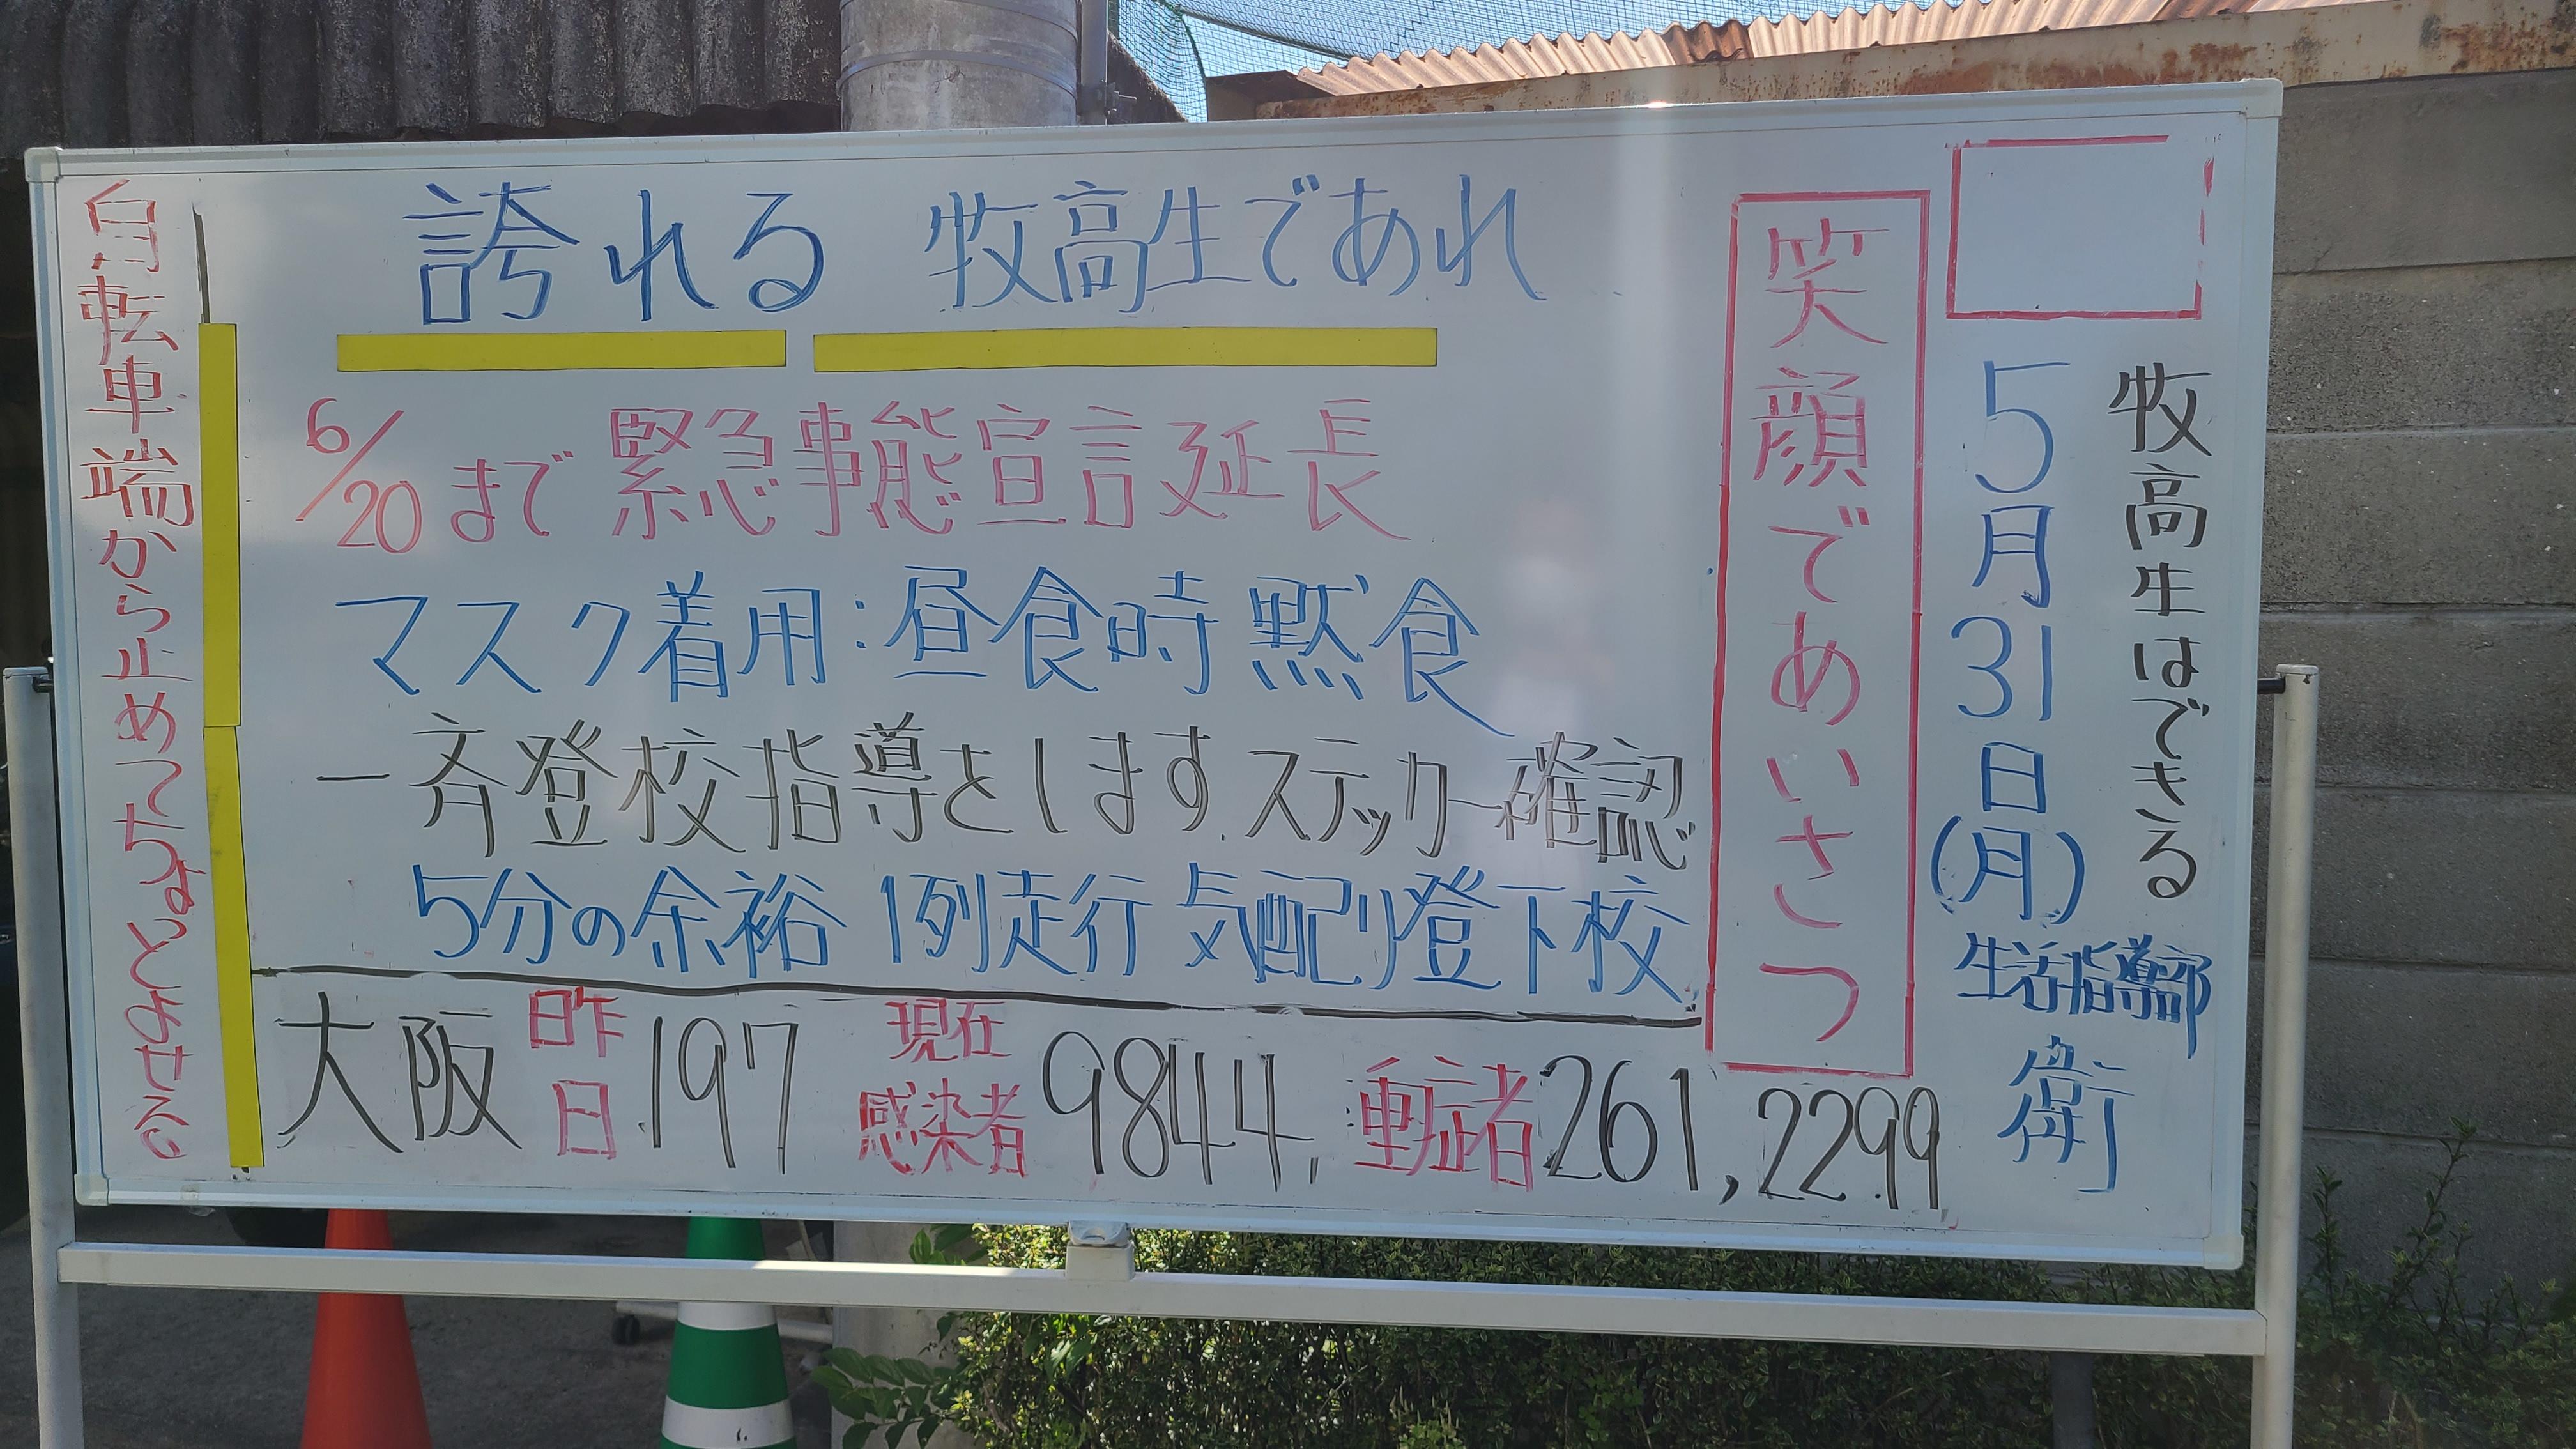 牧高生はできる
5月31日(月)
生活指導部
衛
笑顔であいさつ
誇れる 牧高生であれ
6/20まで緊急事態宣言延長
マスク着用:昼食時 黙食
一斉登校指導をします.ステッカー確認
5分の余裕 1列走行 気配り登下校
大阪 昨日 197 現在感染者 9844, 重症者 261,2299
自転車端から止めてちょっとよせる。